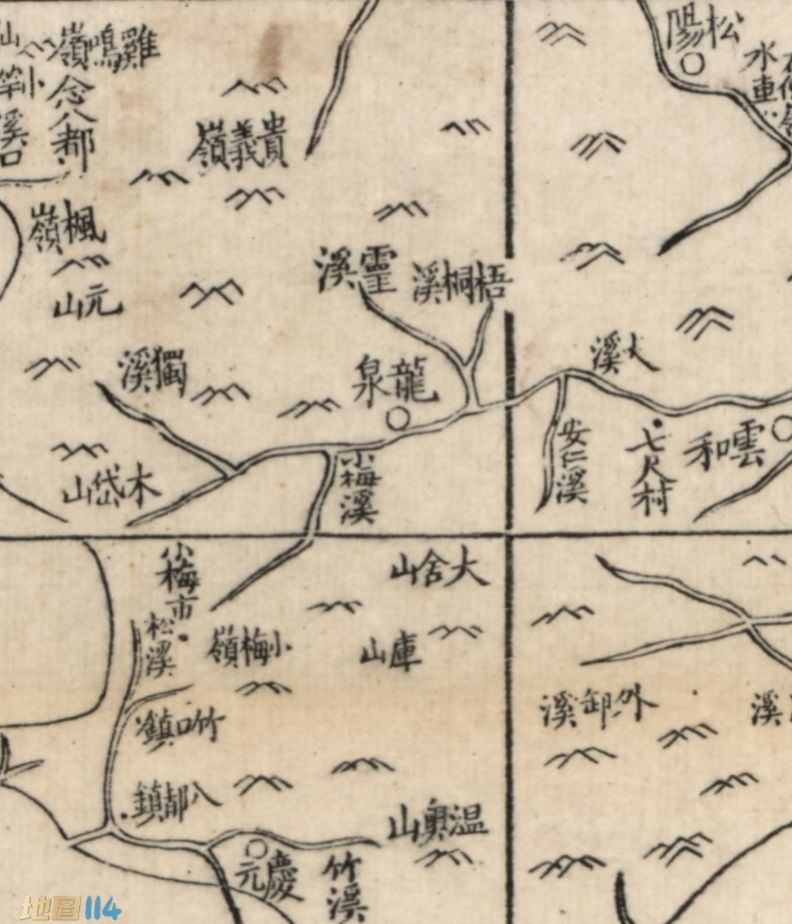 松陽
水車
雞鳴嶺
念八都
小竿
溪口
貴義嶺
楓嶺
元山
靈溪
梧桐溪
獨溪
龍泉
大溪
木岱山
小梅溪
安仁溪
七尺村
雲和
小梅市
松溪
大舍山
小梅嶺
庫山
外卸溪
溪
竹口鎮
八都鎮
溫奧山
慶元
竹溪
地图114